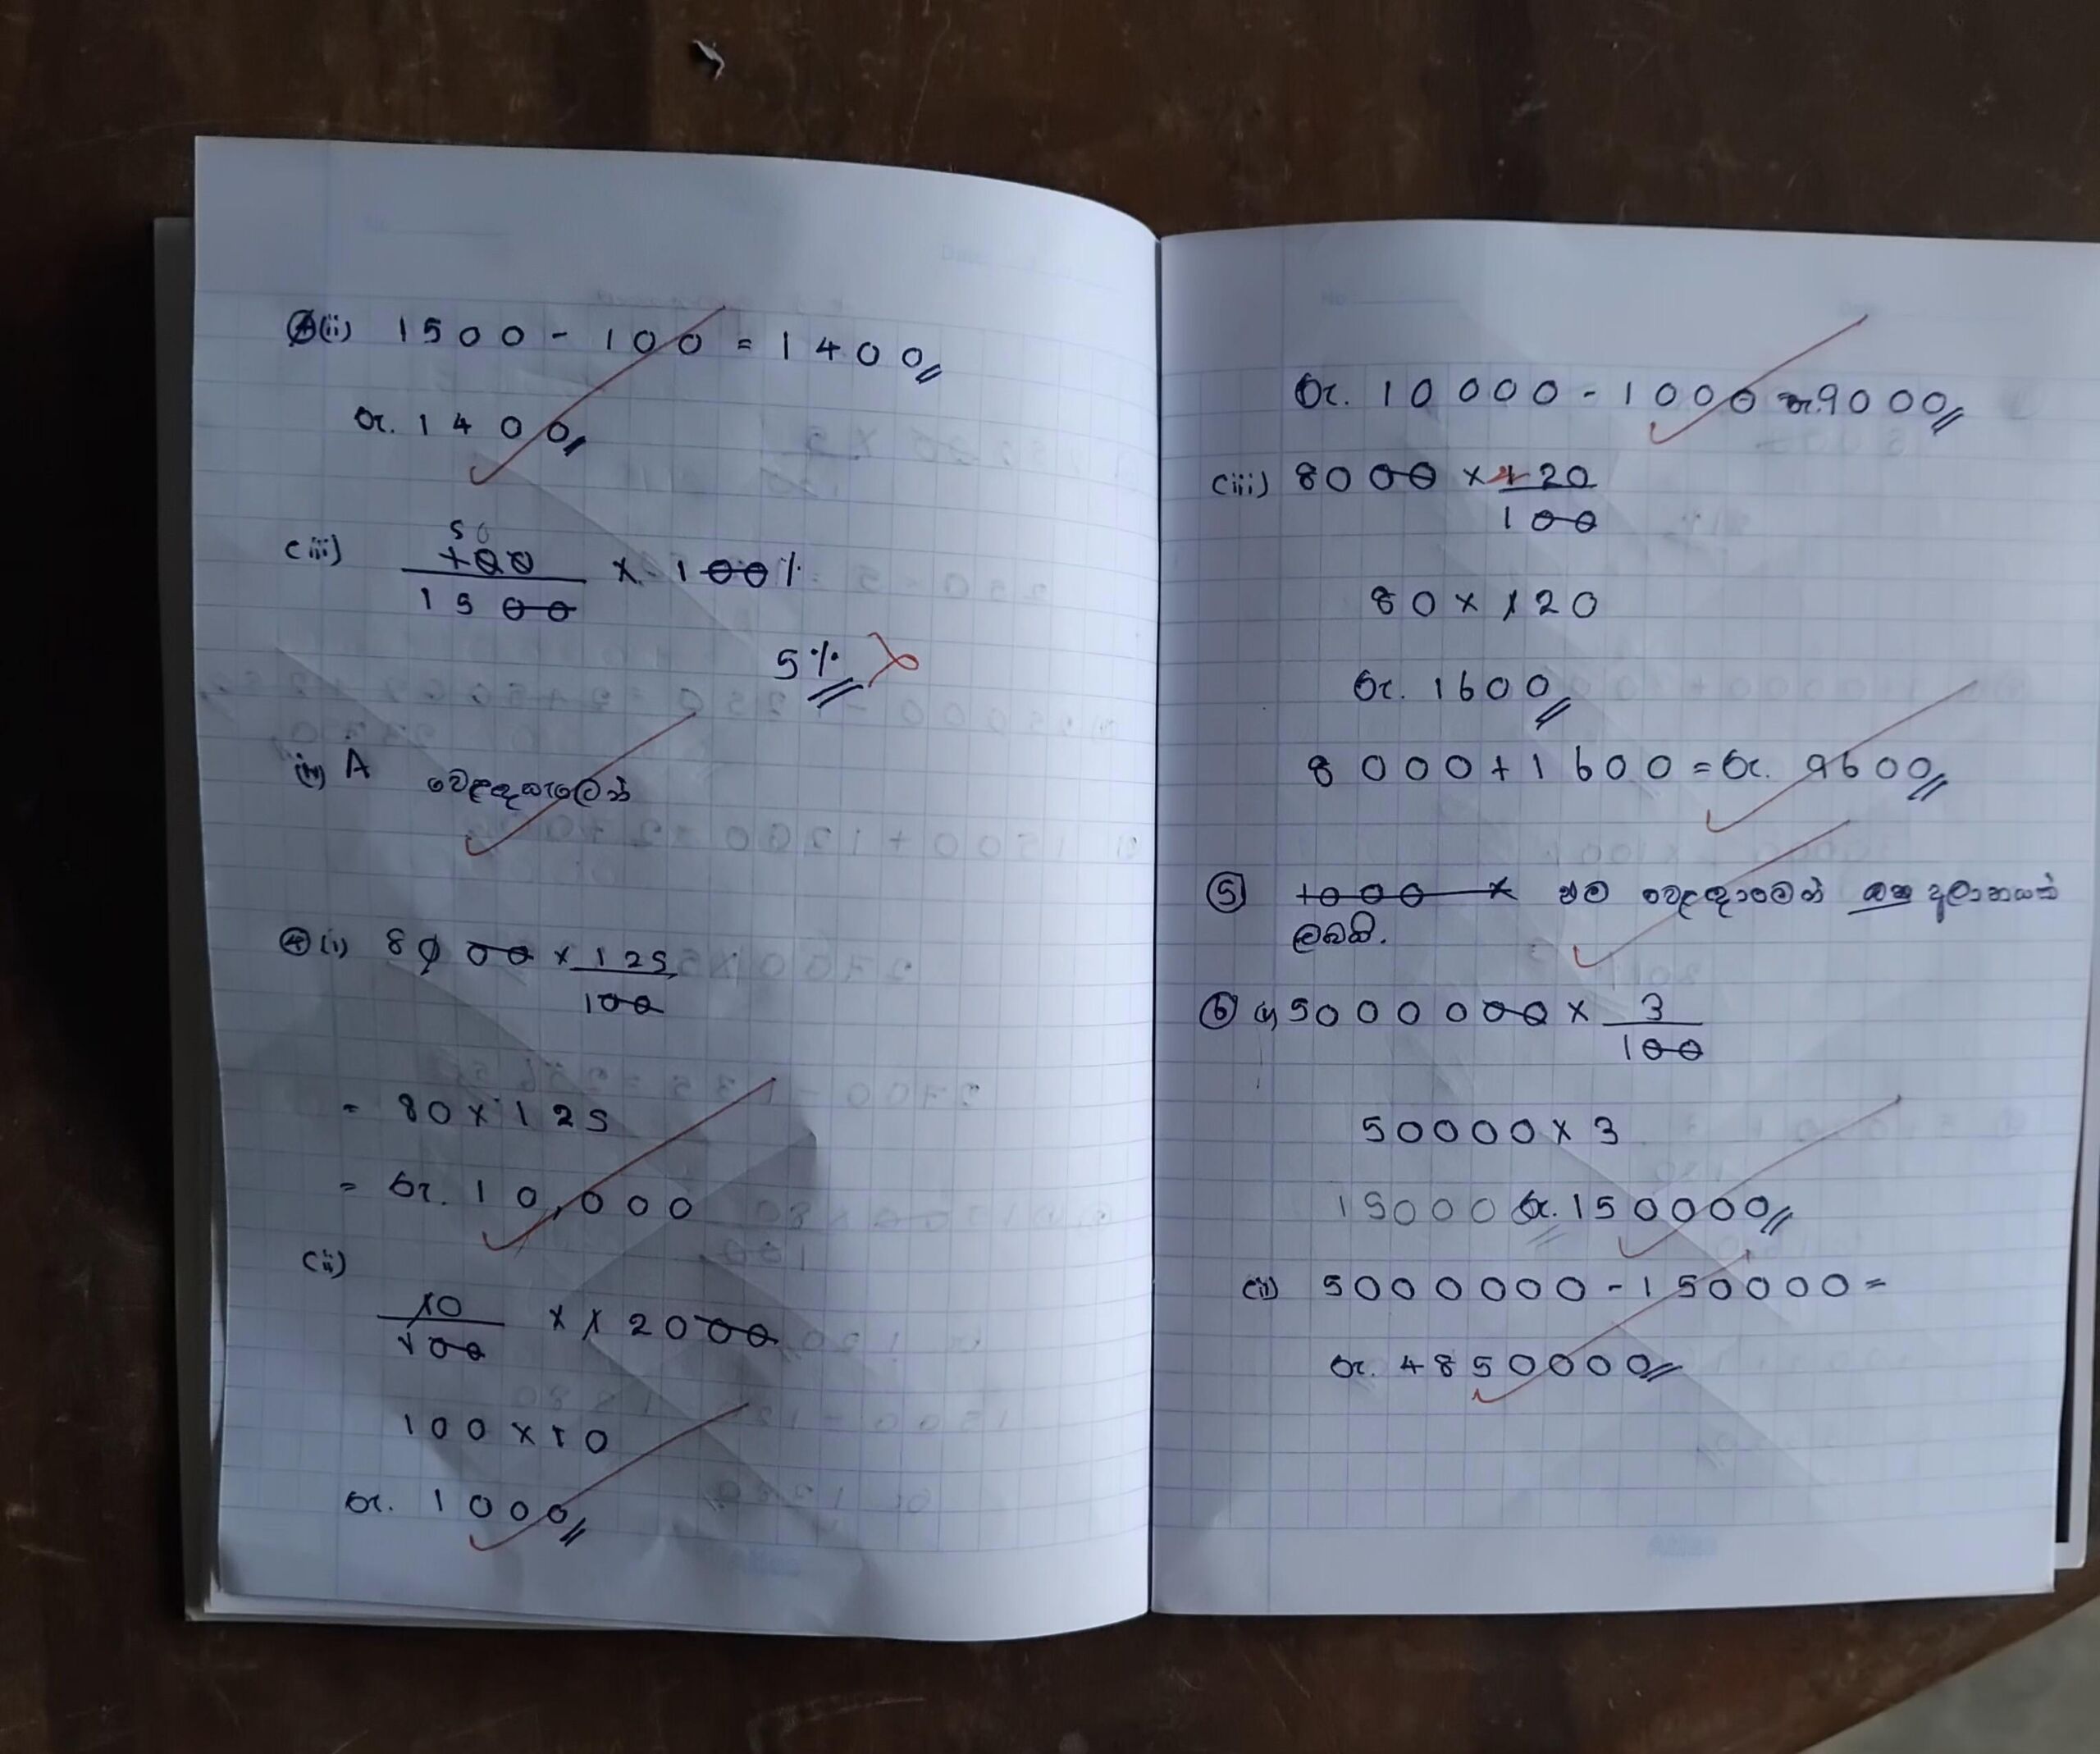 (ii) 1500 - 100 = 1400
රු. 1400
(iii) 50
100
1500 × 100%
5%
(iv) A වෙළඳසැලෙන්
④ (i) 8000 × 125
100
= 80 × 125
= රු. 10,000
(ii)
10
100 × 12000
100 × 10
රු. 1000
රු. 10000 - 1000 = රු. 9000
(iii) 8000 × 20
100
80 × 20
රු. 1600
8000 + 1600 = රු. 9600
⑤ 1000 × එම වෙළඳාමෙන් ලාභයක්
ලබයි.
⑥ (i) 5000000 × 3
100
50000 × 3
15000 රු. 150000
(ii) 5000000 - 150000 =
රු. 4850000